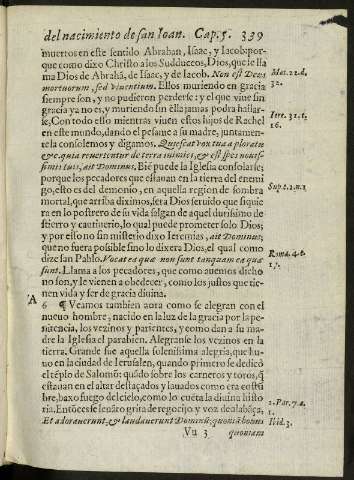 del nacimiento de san Ioan. Cap. 5. 339
muertos en este sentido Abrahan, Isaac, y Iacob: por-
que como dixo Christo a los Sudduceos, Dios, que se lla
ma Dios de Abrahã, de Isaac, y de Iacob. Non est Deus
mortuorum, sed viuentium. Ellos muriendo en gracia
siempre son, y no pudieron perderse: y el que viue sin
gracia ya no es, y muriendo sin ella jamas podra hallar-
se, Con todo esso mientras viuen estos hijos de Rachel
en este mundo, dando el pesame a su madre, juntamen-
te la consolemos y digamos. Quiescat vox tua a ploratu
&c. quia reuertentur de terra inimici, & est spes nouis-
simis tuis, ait Dominus. Biẽ puede la Iglesia consolarse;
porque los pecadores que estauan en la tierra del enemi
go, esto es del demonio, en aquella region de sombra
mortal, que arriba diximos, sera Dios seruido que siquie
ra en lo postrero de su vida salgan de aquel durissimo de
stierro y cautiuerio, lo qual puede prometer solo Dios;
y por esso no sin misterio dixo Ieremias, ait Dominus;
que no fuera posible sino lo dixera Dios, el qual como
dize san Pablo. Vocat ea quæ non sunt tanquam ea quæ
sunt. Llama a los pecadores, que como auemos dicho
no son, y le vienen a obedecer, como los justos que tie-
nen vida y ser de gracia diuina.
6 ¶ Veamos tambien aora como se alegran con el
nueuo hombre, nacido en la luz de la gracia por la pe-
nitencia, los vezinos y parientes, y como dan a su ma-
dre la Iglesia el parabien. Alegranse los vezinos en la
tierra. Grande fue aquella solenissima alegria, que hu-
uo en la ciudad de Ierusalen, quando primero se dedicó
el tẽplo de Salomõ: quãdo sobre los carneros y toros, q̃
estauan en el altar destaçados y lauados como era costũ
bre, baxo fuego del cielo, como lo cuẽta la diuina histo
ria. Entõces se leuãto grita de regocijo y voz de alabãça.
Et adorauerunt, & laudauerunt Dominũ, quoniã bonus
Vu 3 quoniam
Mat. 22. d.
32.
Iere. 31. c.
16.
Sup. c. 2. n. 3
Roma. 4. c.
17.
A
2. Par. 7. a.
1.
Ibid. 3.